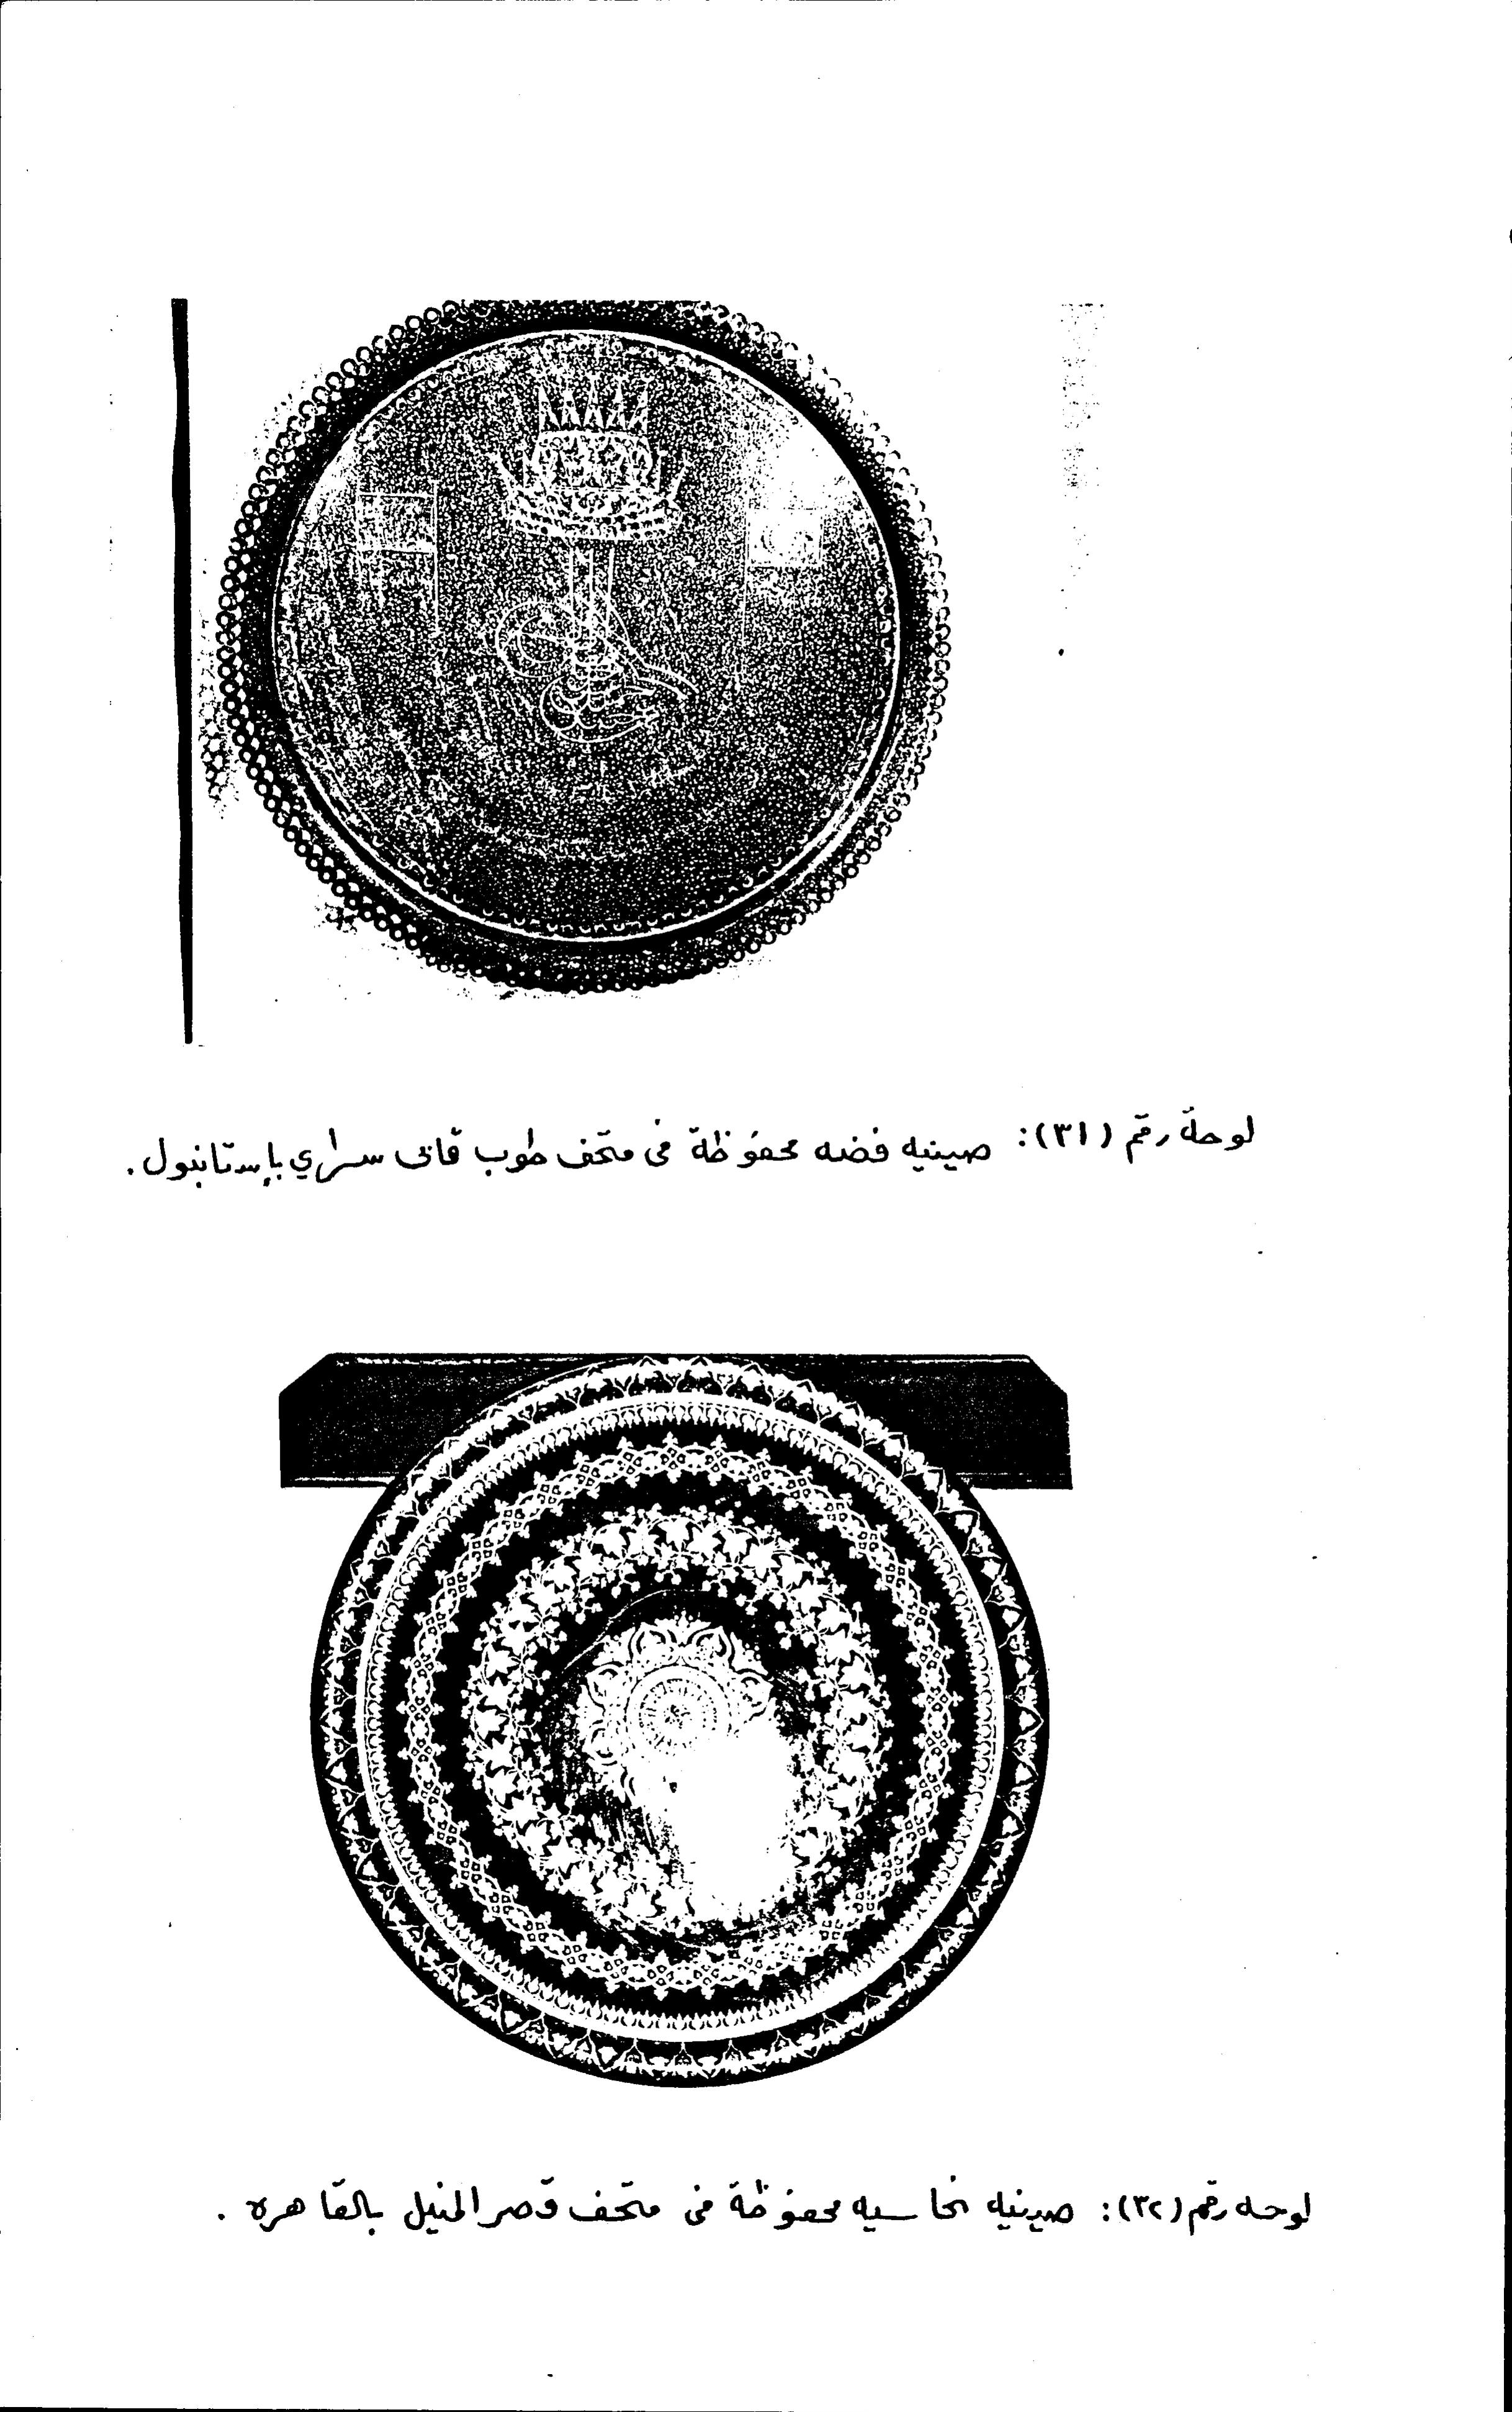 لوحة رقم (٣١): صينيه فضه محفوظة فى متحف طوب قابى سراي بإستانبول.
لوحه رقم (٣٢): صينيه نحاسيه محفوظة فى متحف قصر المنيل بالقاهره .